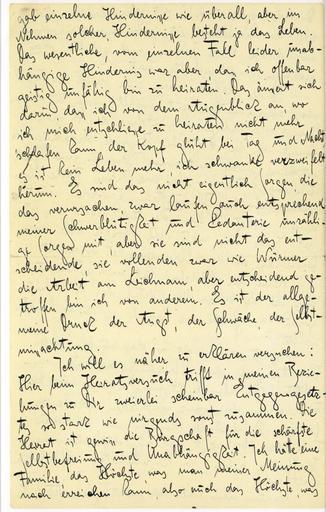 gab einzelne Hindernisse wie überall, aber im
Nehmen solcher Hindernisse besteht ja das Leben.
Das wesentliche, vom einzelnen Fall leider unab-
hängige Hindernis war aber, daß ich offenbar
geistig unfähig bin zu heiraten. Das äußert sich
darin daß ich von dem Augenblick an, wo
ich mich entschließe zu heiraten nicht mehr
schlafen kann, der Kopf glüht bei Tag und Nacht
es ist kein Leben mehr, ich schwanke verzweifelt
herum. Es sind das nicht eigentlich Sorgen die
das verursachen, zwar laufen auch entsprechend
meiner Schwerblütigkeit und Pedanterie unzähli-
ge Sorgen mit, aber sie sind nicht das ent-
scheidende, sie vollenden zwar wie Würmer
die Arbeit am Leichnam, aber entscheidend ge-
troffen bin ich von anderem. Es ist der allge-
meine Druck der Angst, der Schwäche, der Selbst-
mißachtung.
Ich will es näher zu erklären versuchen:
Hier beim Heiratsversuch trifft in meinen Bezie-
hungen zu Dir zweierlei scheinbar Entgegengesetz-
tes so stark wie nirgends sonst zusammen. Die
Heirat ist gewiß die Bürgschaft für die schärfste
Selbstbefreiung und Unabhängigkeit. Ich hätte eine
Familie, das Höchste, was man meiner Meinung
nach erreichen kann, also auch das Höchste, was